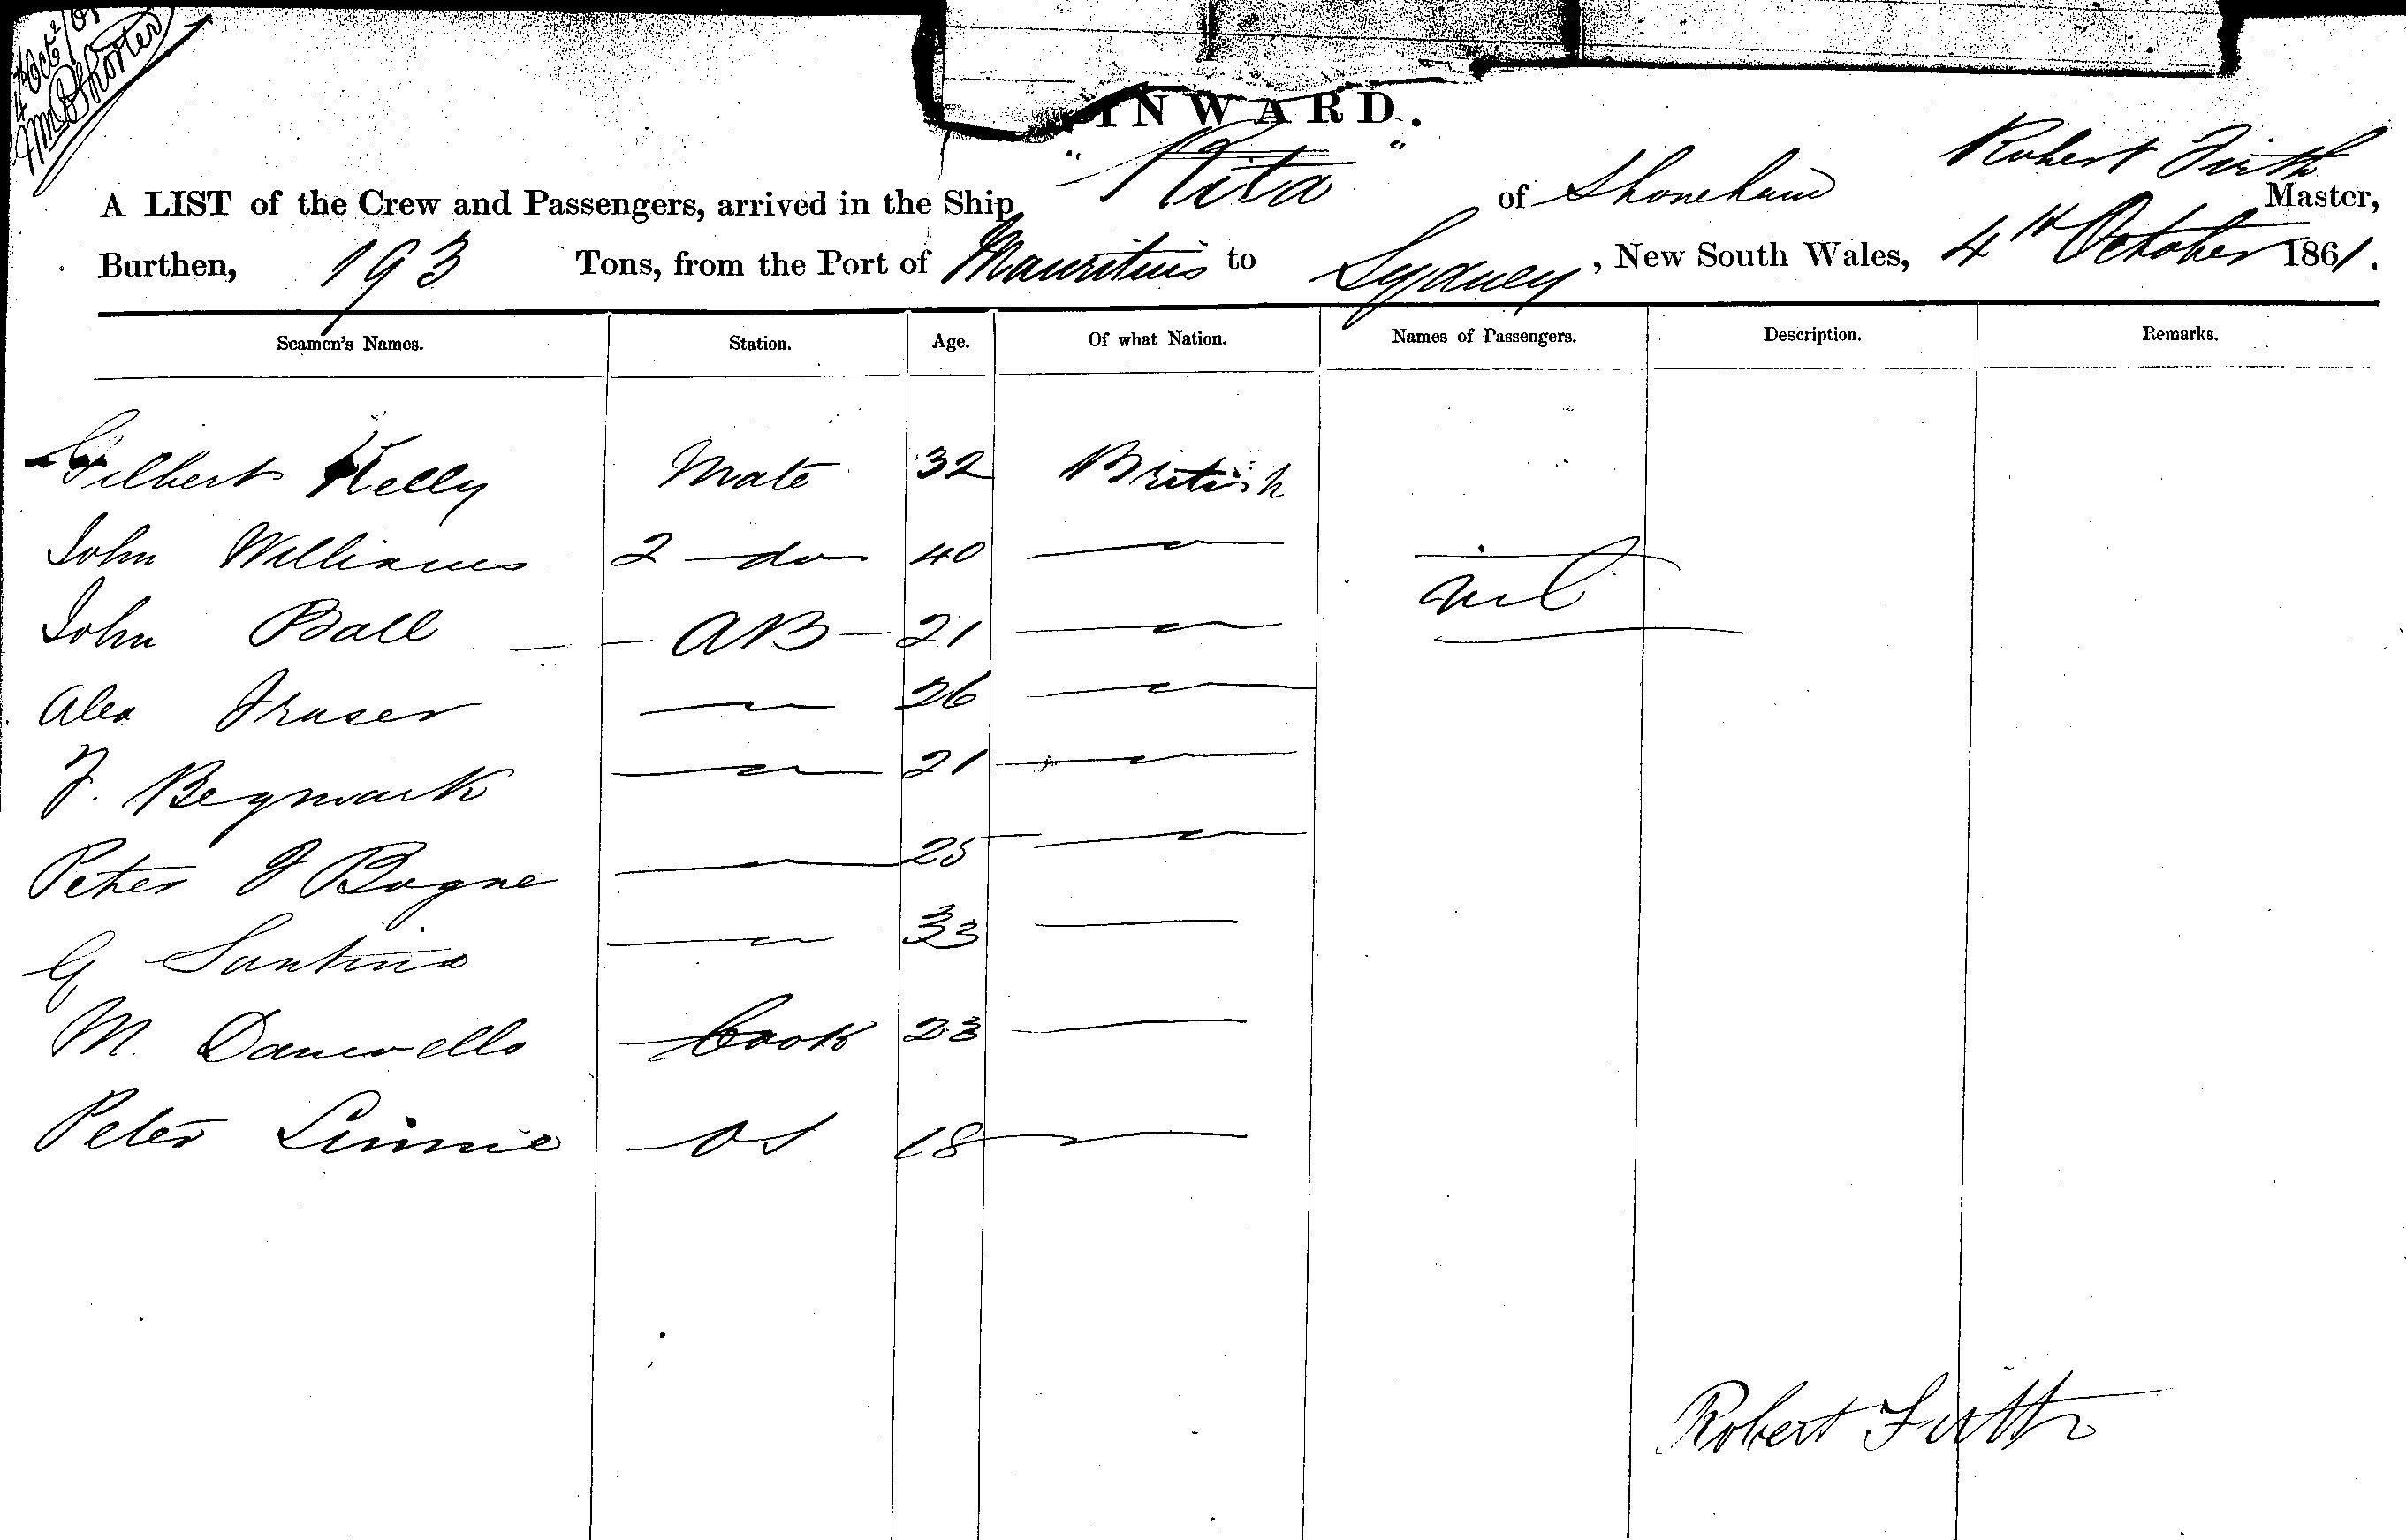 4 Oct
Mr Shorter
INWARD.
A LIST of the Crew and Passengers, arrived in the Ship "Rita" of Shoreham Robert Firth Master,
Burthen, 193 Tons, from the Port of Mauritius to Sydney, New South Wales, 4th October 1861.
Seamen's Names. Station. Age. Of what Nation. Names of Passengers. Description. Remarks.
Gilbert Kelly Mate 32 British
John Williams 2 do 40 nil
John Ball AB 21
Alex Fraser 26
F. Begmark 21
Peter J Bogne 25
G Santino 33
M. Cook 23
Peter Linnie OS 18
Robert Firth